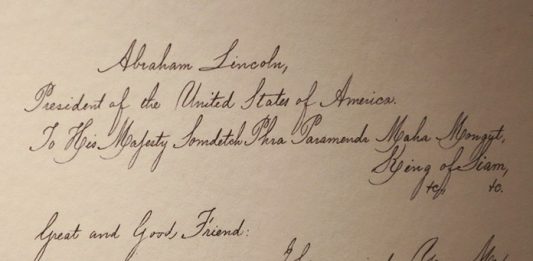 Abraham Lincoln,
President of the United States of America.
To His Majesty Somdetch Phra Paramendr Maha Mongut,
King of Siam,
&c, &c.
Great and Good Friend:
I have received